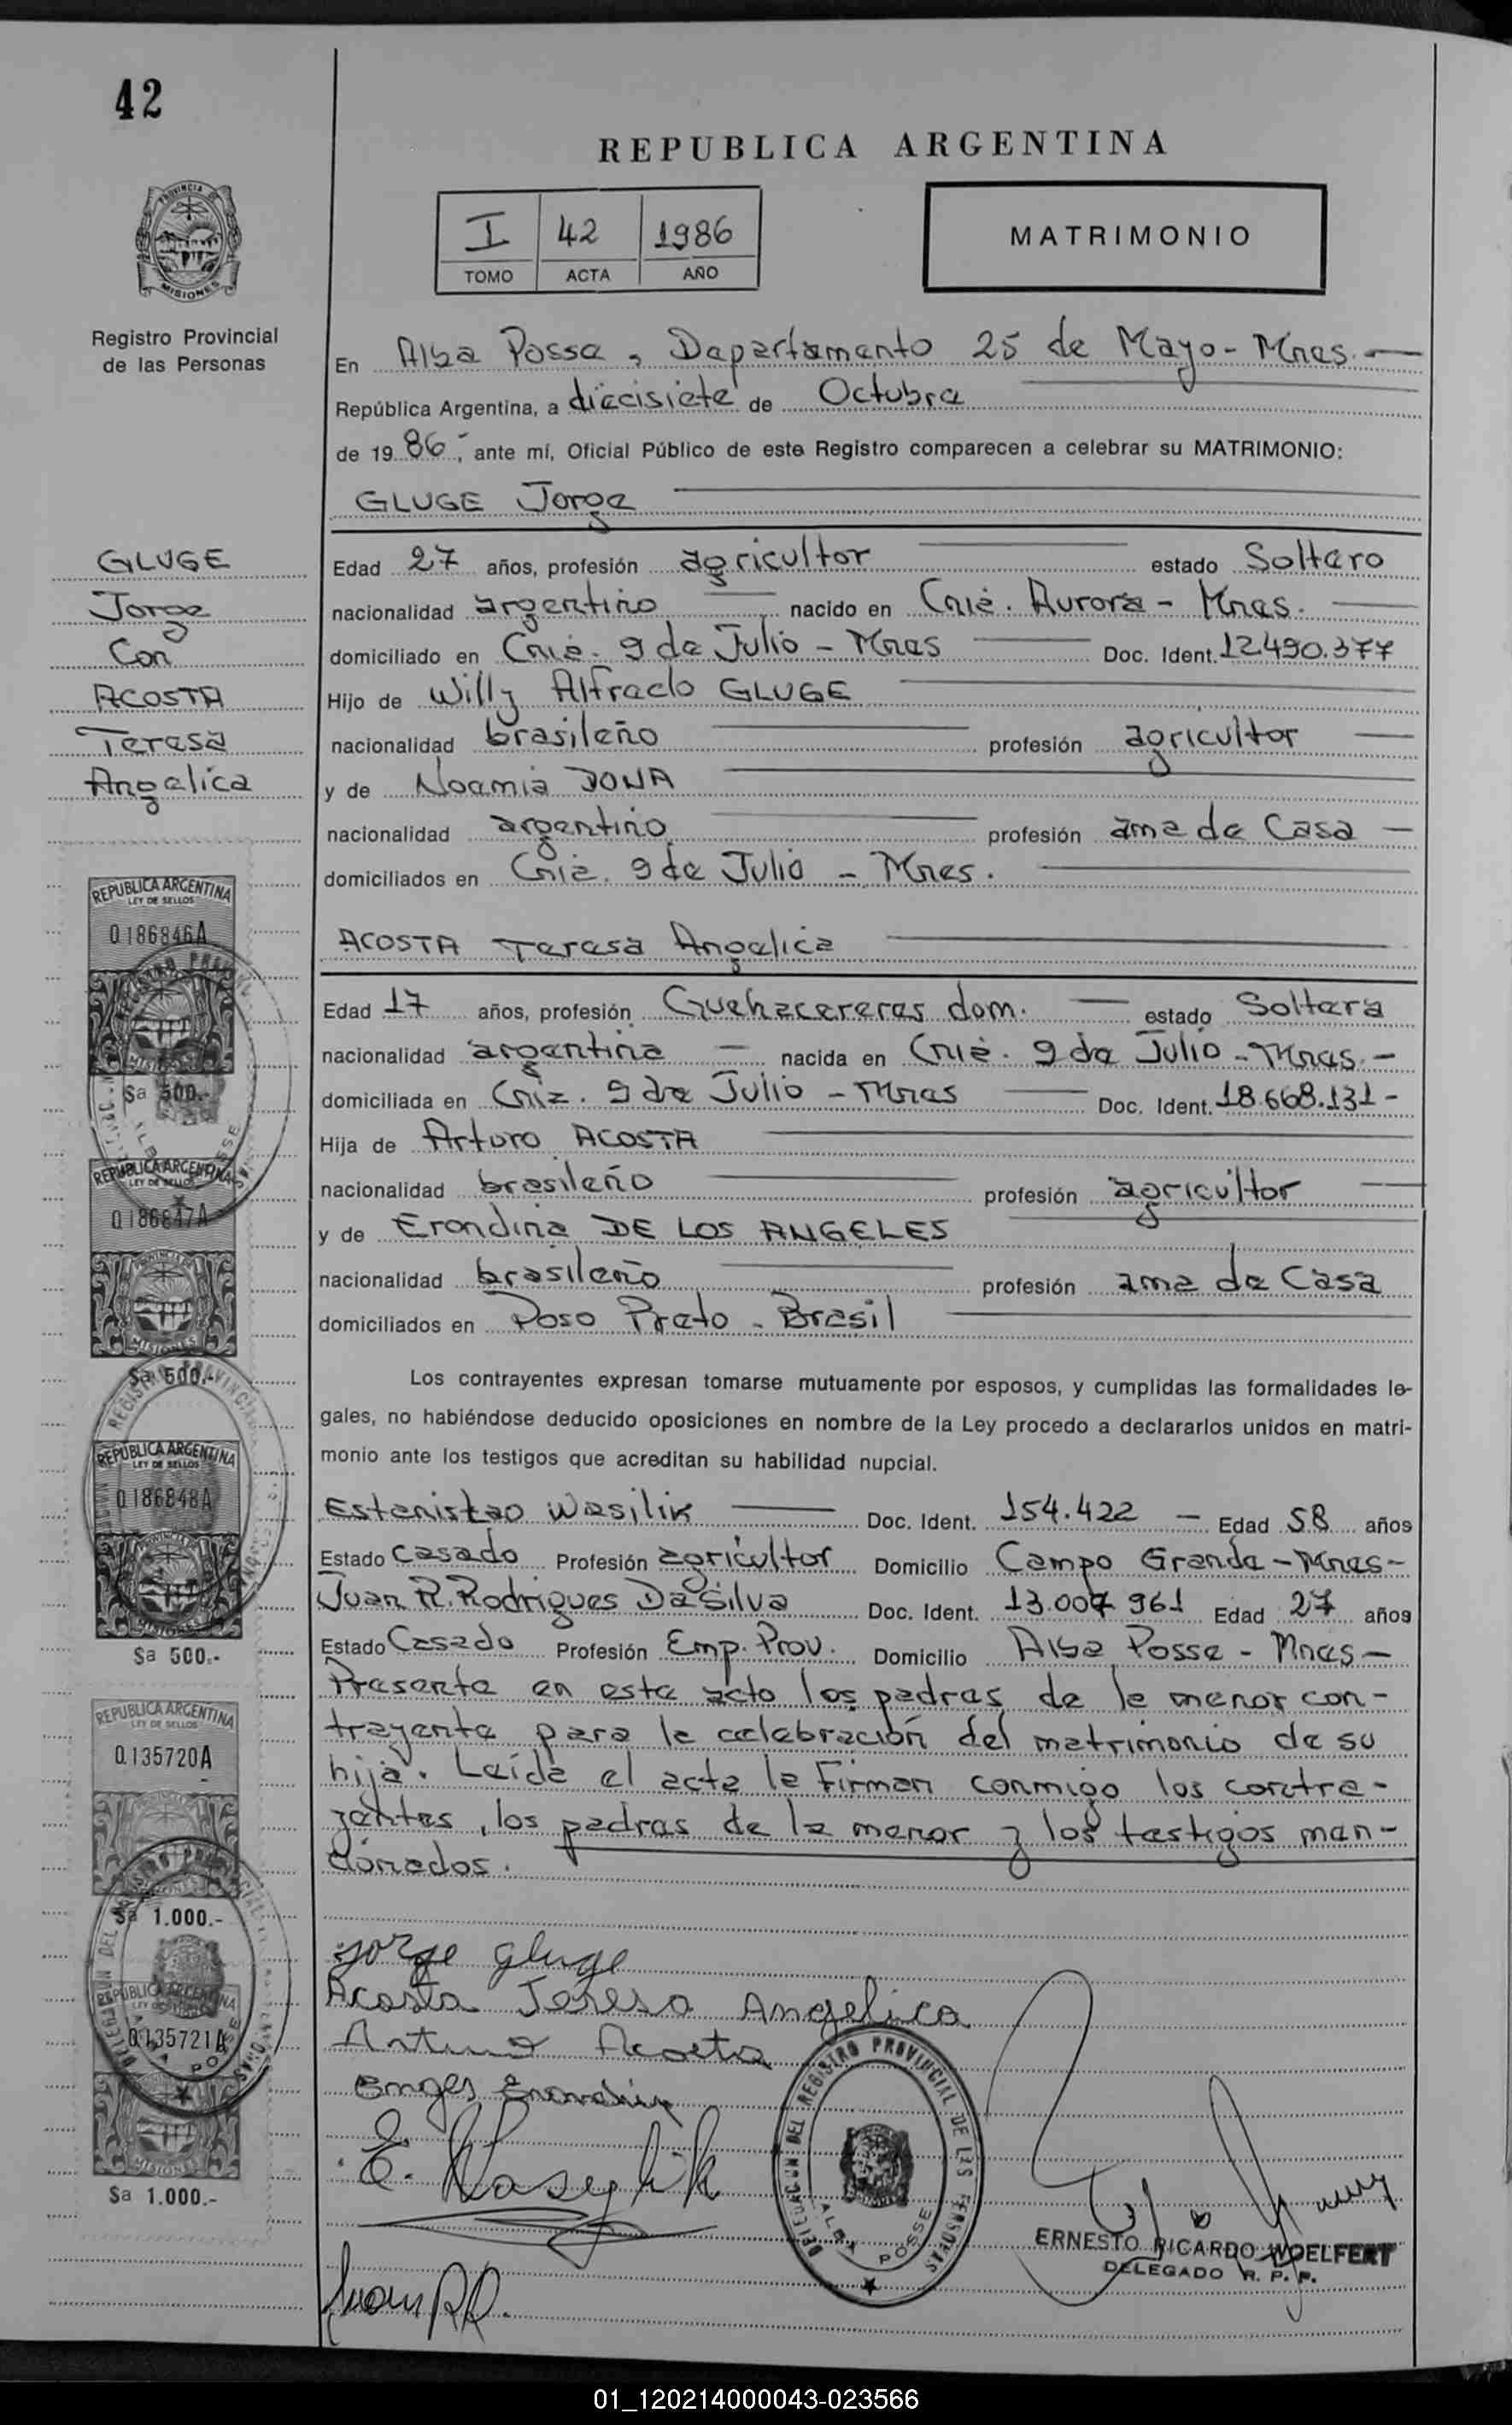 42
REPUBLICA ARGENTINA
PROVINCIA DE
MISIONES
I 42 1986
TOMO ACTA AÑO
MATRIMONIO
Registro Provincial
de las Personas
En Alba Posse, Departamento 25 de Mayo - Mnes.
República Argentina, a diecisiete de Octubre
de 19 86, ante mí, Oficial Público de este Registro comparecen a celebrar su MATRIMONIO:
GLUGE Jorge
GLUGE
Jorge
Con
ACOSTA
Teresa
Angelica
Edad 27 años, profesión agricultor estado Soltero
nacionalidad argentino nacido en Cnia. Aurora - Mnes.
domiciliado en Cnia. 9 de Julio - Mnes Doc. Ident. 12.490.377
Hijo de Willy Alfredo GLUGE
nacionalidad brasileño profesión agricultor
y de Noemia DONA
nacionalidad argentino profesión ama de Casa
domiciliados en Cnia. 9 de Julio - Mnes.
ACOSTA Teresa Angelica
Edad 17 años, profesión Quehacereres dom. estado Soltera
nacionalidad argentina nacida en Cnia. 9 de Julio - Mnes.-
domiciliada en Cnia. 9 de Julio - Mnes Doc. Ident. 18.668.131-
Hija de Arturo ACOSTA
nacionalidad brasileño profesión agricultor
y de Erondina DE LOS ANGELES
nacionalidad brasileño profesión ama de Casa
domiciliados en Poso Preto - Brasil
Los contrayentes expresan tomarse mutuamente por esposos, y cumplidas las formalidades le-
gales, no habiéndose deducido oposiciones en nombre de la Ley procedo a declararlos unidos en matri-
monio ante los testigos que acreditan su habilidad nupcial.
Estanislao Wasilik Doc. Ident. 154.422 - Edad 58 años
Estado Casado Profesión agricultor Domicilio Campo Grande - Mnes-
Juan R. Rodrigues Da Silva Doc. Ident. 13.007 961 Edad 27 años
Estado Casado Profesión Emp. Prov. Domicilio Alba Posse - Mnes-
Presente en este acto los padres de la menor con-
trayente para la celebración del matrimonio de su
hija. Leída el acta la firman conmigo los contra-
yentes, los padres de la menor y los testigos men-
cionados.
REPUBLICA ARGENTINA
LEY DE SELLOS
0186846A
MISIONES
$a 500.-
REPUBLICA ARGENTINA
LEY DE SELLOS
0186847A
MISIONES
$a 500.-
REPUBLICA ARGENTINA
LEY DE SELLOS
0186848A
MISIONES
$a 500.-
REPUBLICA ARGENTINA
LEY DE SELLOS
0135720A
MISIONES
$a 1.000.-
REPUBLICA ARGENTINA
0135721A
MISIONES
$a 1.000.-
Jorge Gluge
Acosta Teresa Angelica
Arturo Acosta
E. Wasylik
Juan RR.
DELEGACION DEL REGISTRO PROVINCIAL DE LAS PERSONAS
ALBA POSSE
ERNESTO RICARDO WOELFERT
DELEGADO R. P. P.
01_120214000043-023566